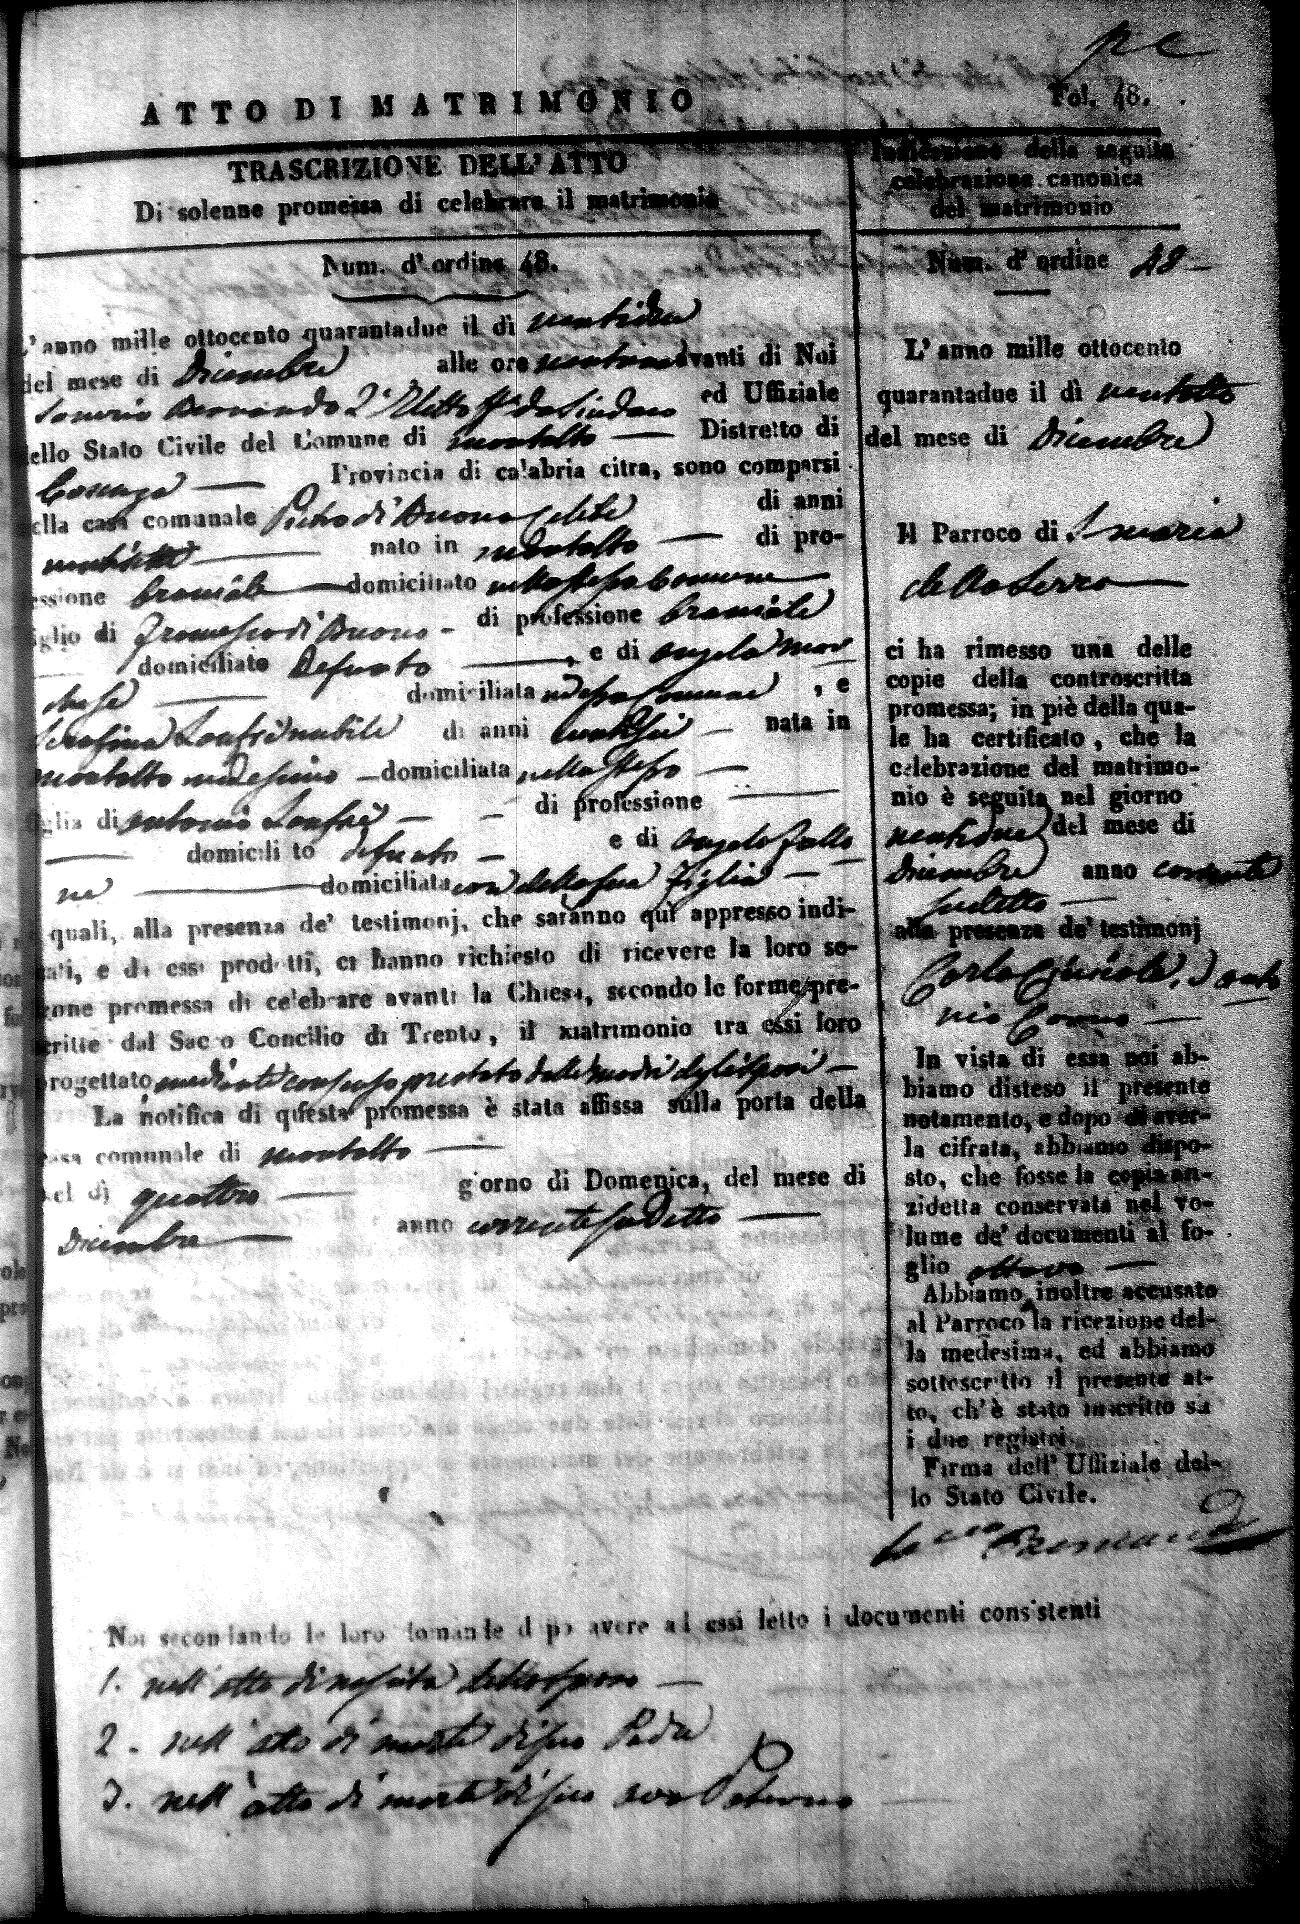 ATTO DI MATRIMONIO
Fol. 48.
TRASCRIZIONE DELL'ATTO
Di solenne promessa di celebrare il matrimonio
Num. d'ordine 48.
L'anno mille ottocento quarantadue il dì ventidue
del mese di Dicembre alle ore avanti di Noi
Bernardo 2° Eletto da Sindaco ed Uffiziale
dello Stato Civile del Comune di Montalto Distretto di
Cosenza Provincia di calabria citra, sono comparsi
nella casa comunale Pietro di Buono celibe di anni
nato in Montalto di pro-
essione Bracciale domiciliato nello stesso Comune
figlio di Francesco di Buono di professione Bracciale
domiciliato Defunto e di Angela
domiciliata Comune, e
Serafina nubile di anni nata in
Montalto medesimo domiciliata nello stesso
figlia di Antonio di professione
domiciliato defunto e di Angela Fallo
ne domiciliata con della sua Figlia
quali, alla presenza de' testimonj, che saranno quì appresso indi-
cati, e da essi prodotti, ci hanno richiesto di ricevere la loro so-
lenne promessa di celebrare avanti la Chiesa, secondo le forme pre-
scritte dal Sacro Concilio di Trento, il matrimonio tra essi loro
progettato mediante consenso prestato dalle Madri degli sposi
La notifica di questa promessa è stata affissa sulla porta della
casa comunale di Montalto
nel dì quattro giorno di Domenica, del mese di
Dicembre anno corrente sudetto
Noi secondando le loro domande dopo avere ad essi letto i documenti consistenti
1. nell'atto di nascita dello sposo
2. nell'atto di morte di suo Padre
3. nell'atto di morte di suo avo Paterno
Indicazione della seguita
celebrazione canonica
del matrimonio
Num. d'ordine 48
L'anno mille ottocento
quarantadue il dì ventotto
del mese di Dicembre
Il Parroco di S Maria
della Serra
ci ha rimesso una delle
copie della controscritta
promessa; in piè della qua-
le ha certificato, che la
celebrazione del matrimo-
nio è seguita nel giorno
ventidue del mese di
Dicembre anno corrente
sudetto
alla presenza de' testimonj
Carlo
In vista di essa noi ab-
biamo disteso il presente
notamento, e dopo di aver-
la cifrata, abbiamo dispo-
sto, che fosse la copia an-
zidetta conservata nel vo-
lume de' documenti al fo-
glio ottavo
Abbiamo inoltre accusato
al Parroco la ricezione del-
la medesima, ed abbiamo
sottoscritto il presente at-
to, ch'è stato inscritto su
i due registri.
Firma dell'Uffiziale del-
lo Stato Civile.